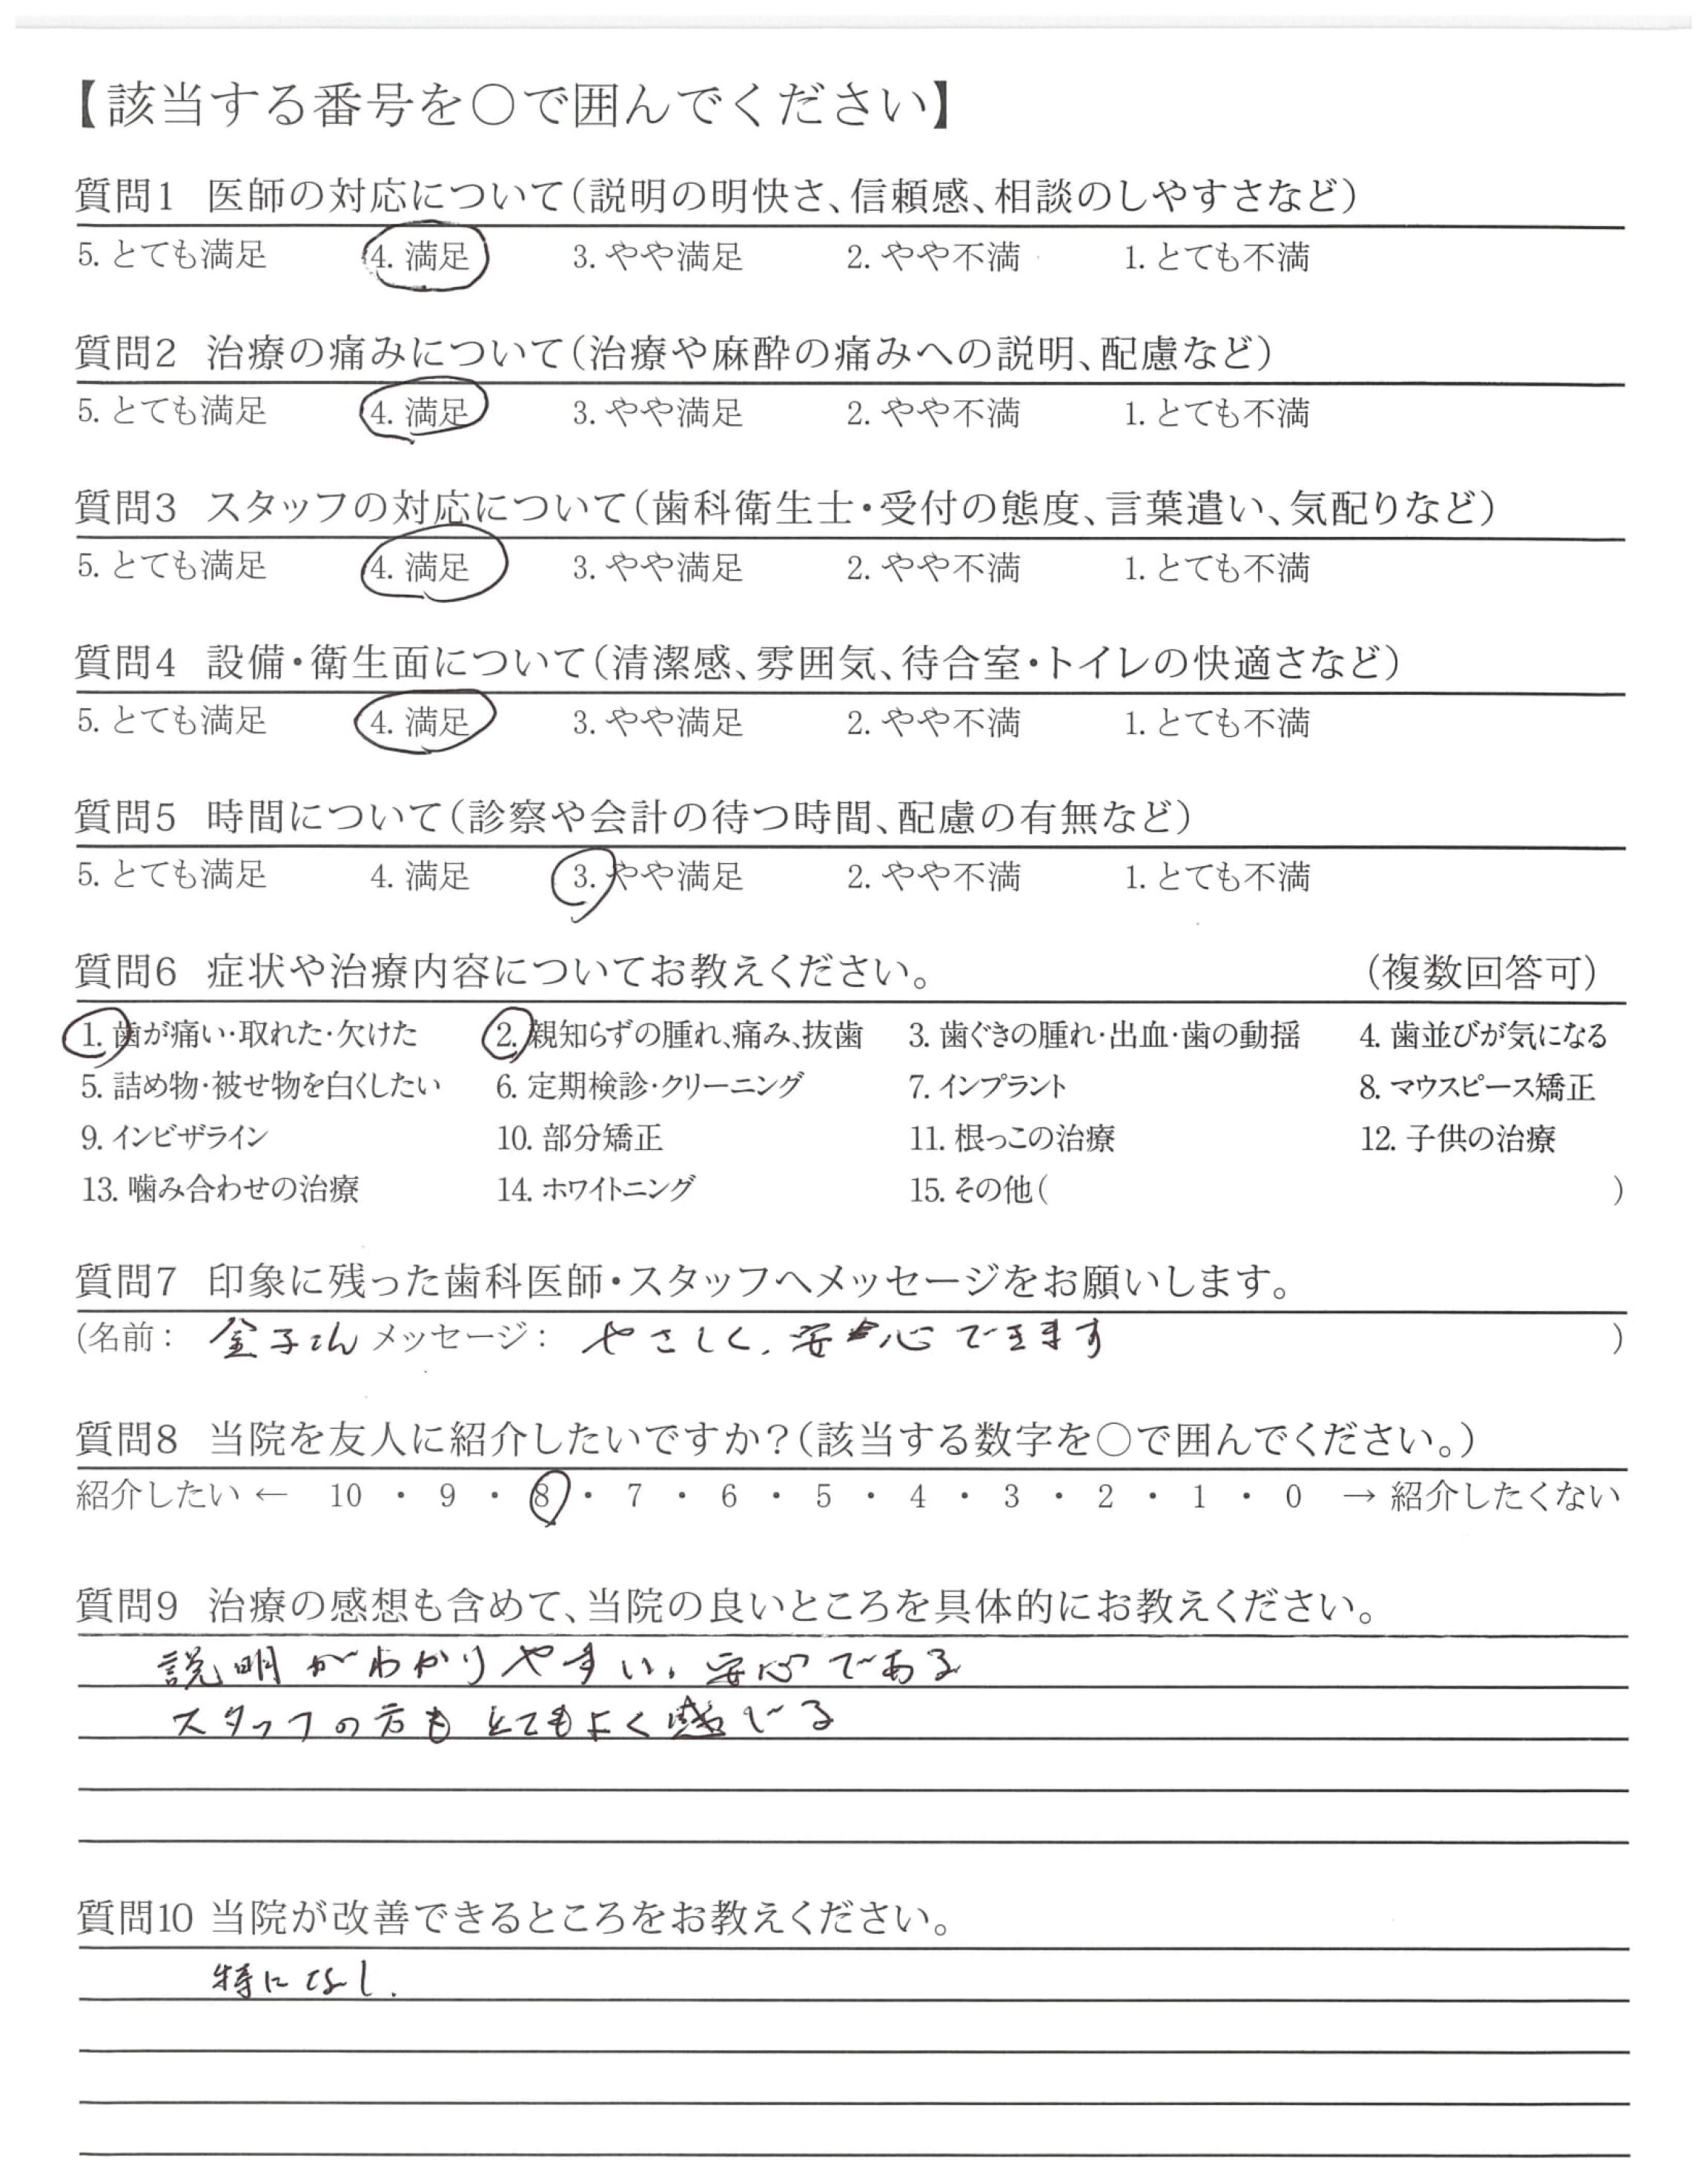 【該当する番号を○で囲んでください】
質問1 医師の対応について(説明の明快さ、信頼感、相談のしやすさなど)
5. とても満足 4. 満足 3. やや満足 2. やや不満 1. とても不満
質問2 治療の痛みについて(治療や麻酔の痛みへの説明、配慮など)
5. とても満足 4. 満足 3. やや満足 2. やや不満 1. とても不満
質問3 スタッフの対応について(歯科衛生士・受付の態度、言葉遣い、気配りなど)
5. とても満足 4. 満足 3. やや満足 2. やや不満 1. とても不満
質問4 設備・衛生面について(清潔感、雰囲気、待合室・トイレの快適さなど)
5. とても満足 4. 満足 3. やや満足 2. やや不満 1. とても不満
質問5 時間について(診察や会計の待つ時間、配慮の有無など)
5. とても満足 4. 満足 3. やや満足 2. やや不満 1. とても不満
質問6 症状や治療内容についてお教えください。 (複数回答可)
1. 歯が痛い・取れた・欠けた 2. 親知らずの腫れ、痛み、抜歯 3. 歯ぐきの腫れ・出血・歯の動揺 4. 歯並びが気になる
5. 詰め物・被せ物を白くしたい 6. 定期検診・クリーニング 7. インプラント 8. マウスピース矯正
9. インビザライン 10. 部分矯正 11. 根っこの治療 12. 子供の治療
13. 噛み合わせの治療 14. ホワイトニング 15. その他( )
質問7 印象に残った歯科医師・スタッフへメッセージをお願いします。
(名前: 金子さん メッセージ: やさしく、安心できます )
質問8 当院を友人に紹介したいですか?(該当する数字を○で囲んでください。)
紹介したい ← 10 ・ 9 ・ 8 ・ 7 ・ 6 ・ 5 ・ 4 ・ 3 ・ 2 ・ 1 ・ 0 → 紹介したくない
質問9 治療の感想も含めて、当院の良いところを具体的にお教えください。
説明がわかりやすい、安心である
スタッフの方もとてもよく感じる
質問10 当院が改善できるところをお教えください。
特になし.